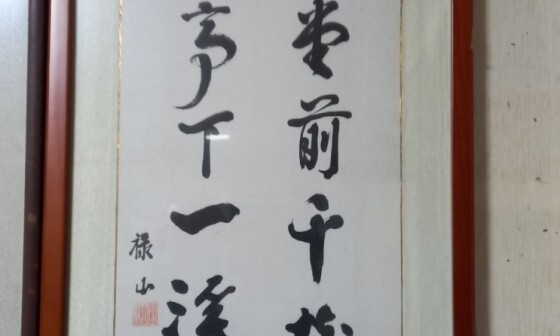 堂前千
亭下一溪
禄山